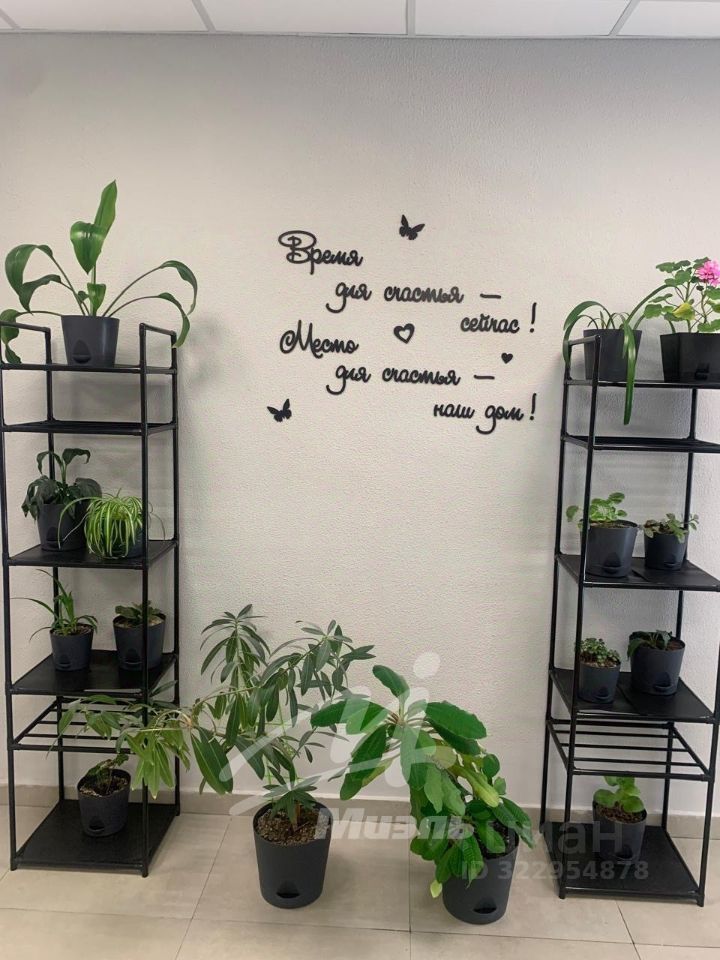 Время
для счастья —
сейчас !
Место
для счастья —
наш дом !
Миэль
циан
ID 322954878